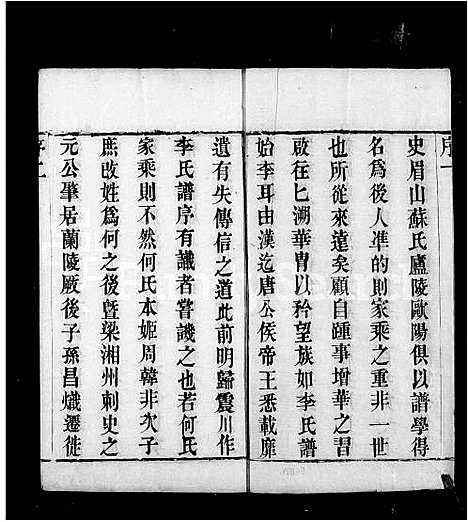 序一
史眉山蘇氏廬陵歐陽俱以譜學得
名為後人凖的則家乘之重非一世
也所從來遠矣顧自踵事增華之習
啟在匕溯華胄以矜望族如李氏譜
始李耳由漢迄唐公侯帝王悉載靡
遺有失傳信之道此前明歸震川作
李氏譜序有譏者嘗譏之也若何氏
家乘則不然何氏本姬周韓非次子
庶改姓為何之後曁梁湘州刺史之
元公肇居蘭陵厥後子孫昌熾遷徙
序二